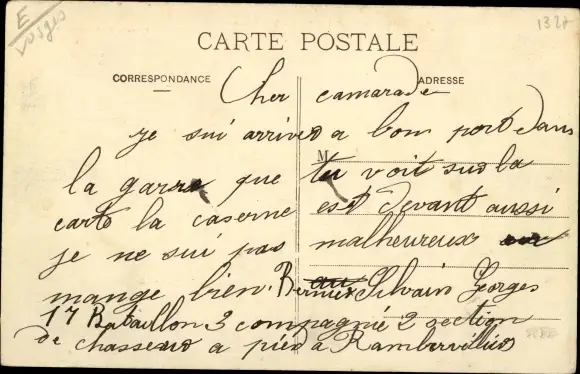 E
Vosges
1328
CARTE POSTALE
CORRESPONDANCE
ADRESSE
Cher camarade
je sui arriver a bom port dans
M
la garre que tu voit sur la
carte la caserne est devant aussi
je ne sui pas malheureux
mange bien. Silvain Georges
17 Bataillon 3 compagnie 2 section
de chasseur a pied a Rambervilliers